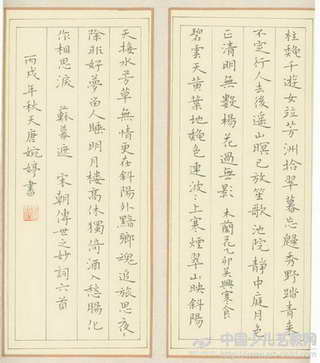 柱魏千遊女拉芳洲拾翠暮忘歸秀野踏青來
不定行人去後遥山暝已放笙歌池院靜中庭月色
正清明無數楊花過無影 木蘭花乙卯吴興寒食
碧雲天黄葉地秋色連波波上寒煙翠山映斜陽
天接水芳草無情更在斜陽外黯鄉魂追旅思夜夜
除非好夢留人睡明月樓高休獨倚酒入愁腸化
作相思淚 蘇幕遮 宋朝傳世之妙詞六首
丙戌年秋天唐婉婷書
中国少儿艺教网